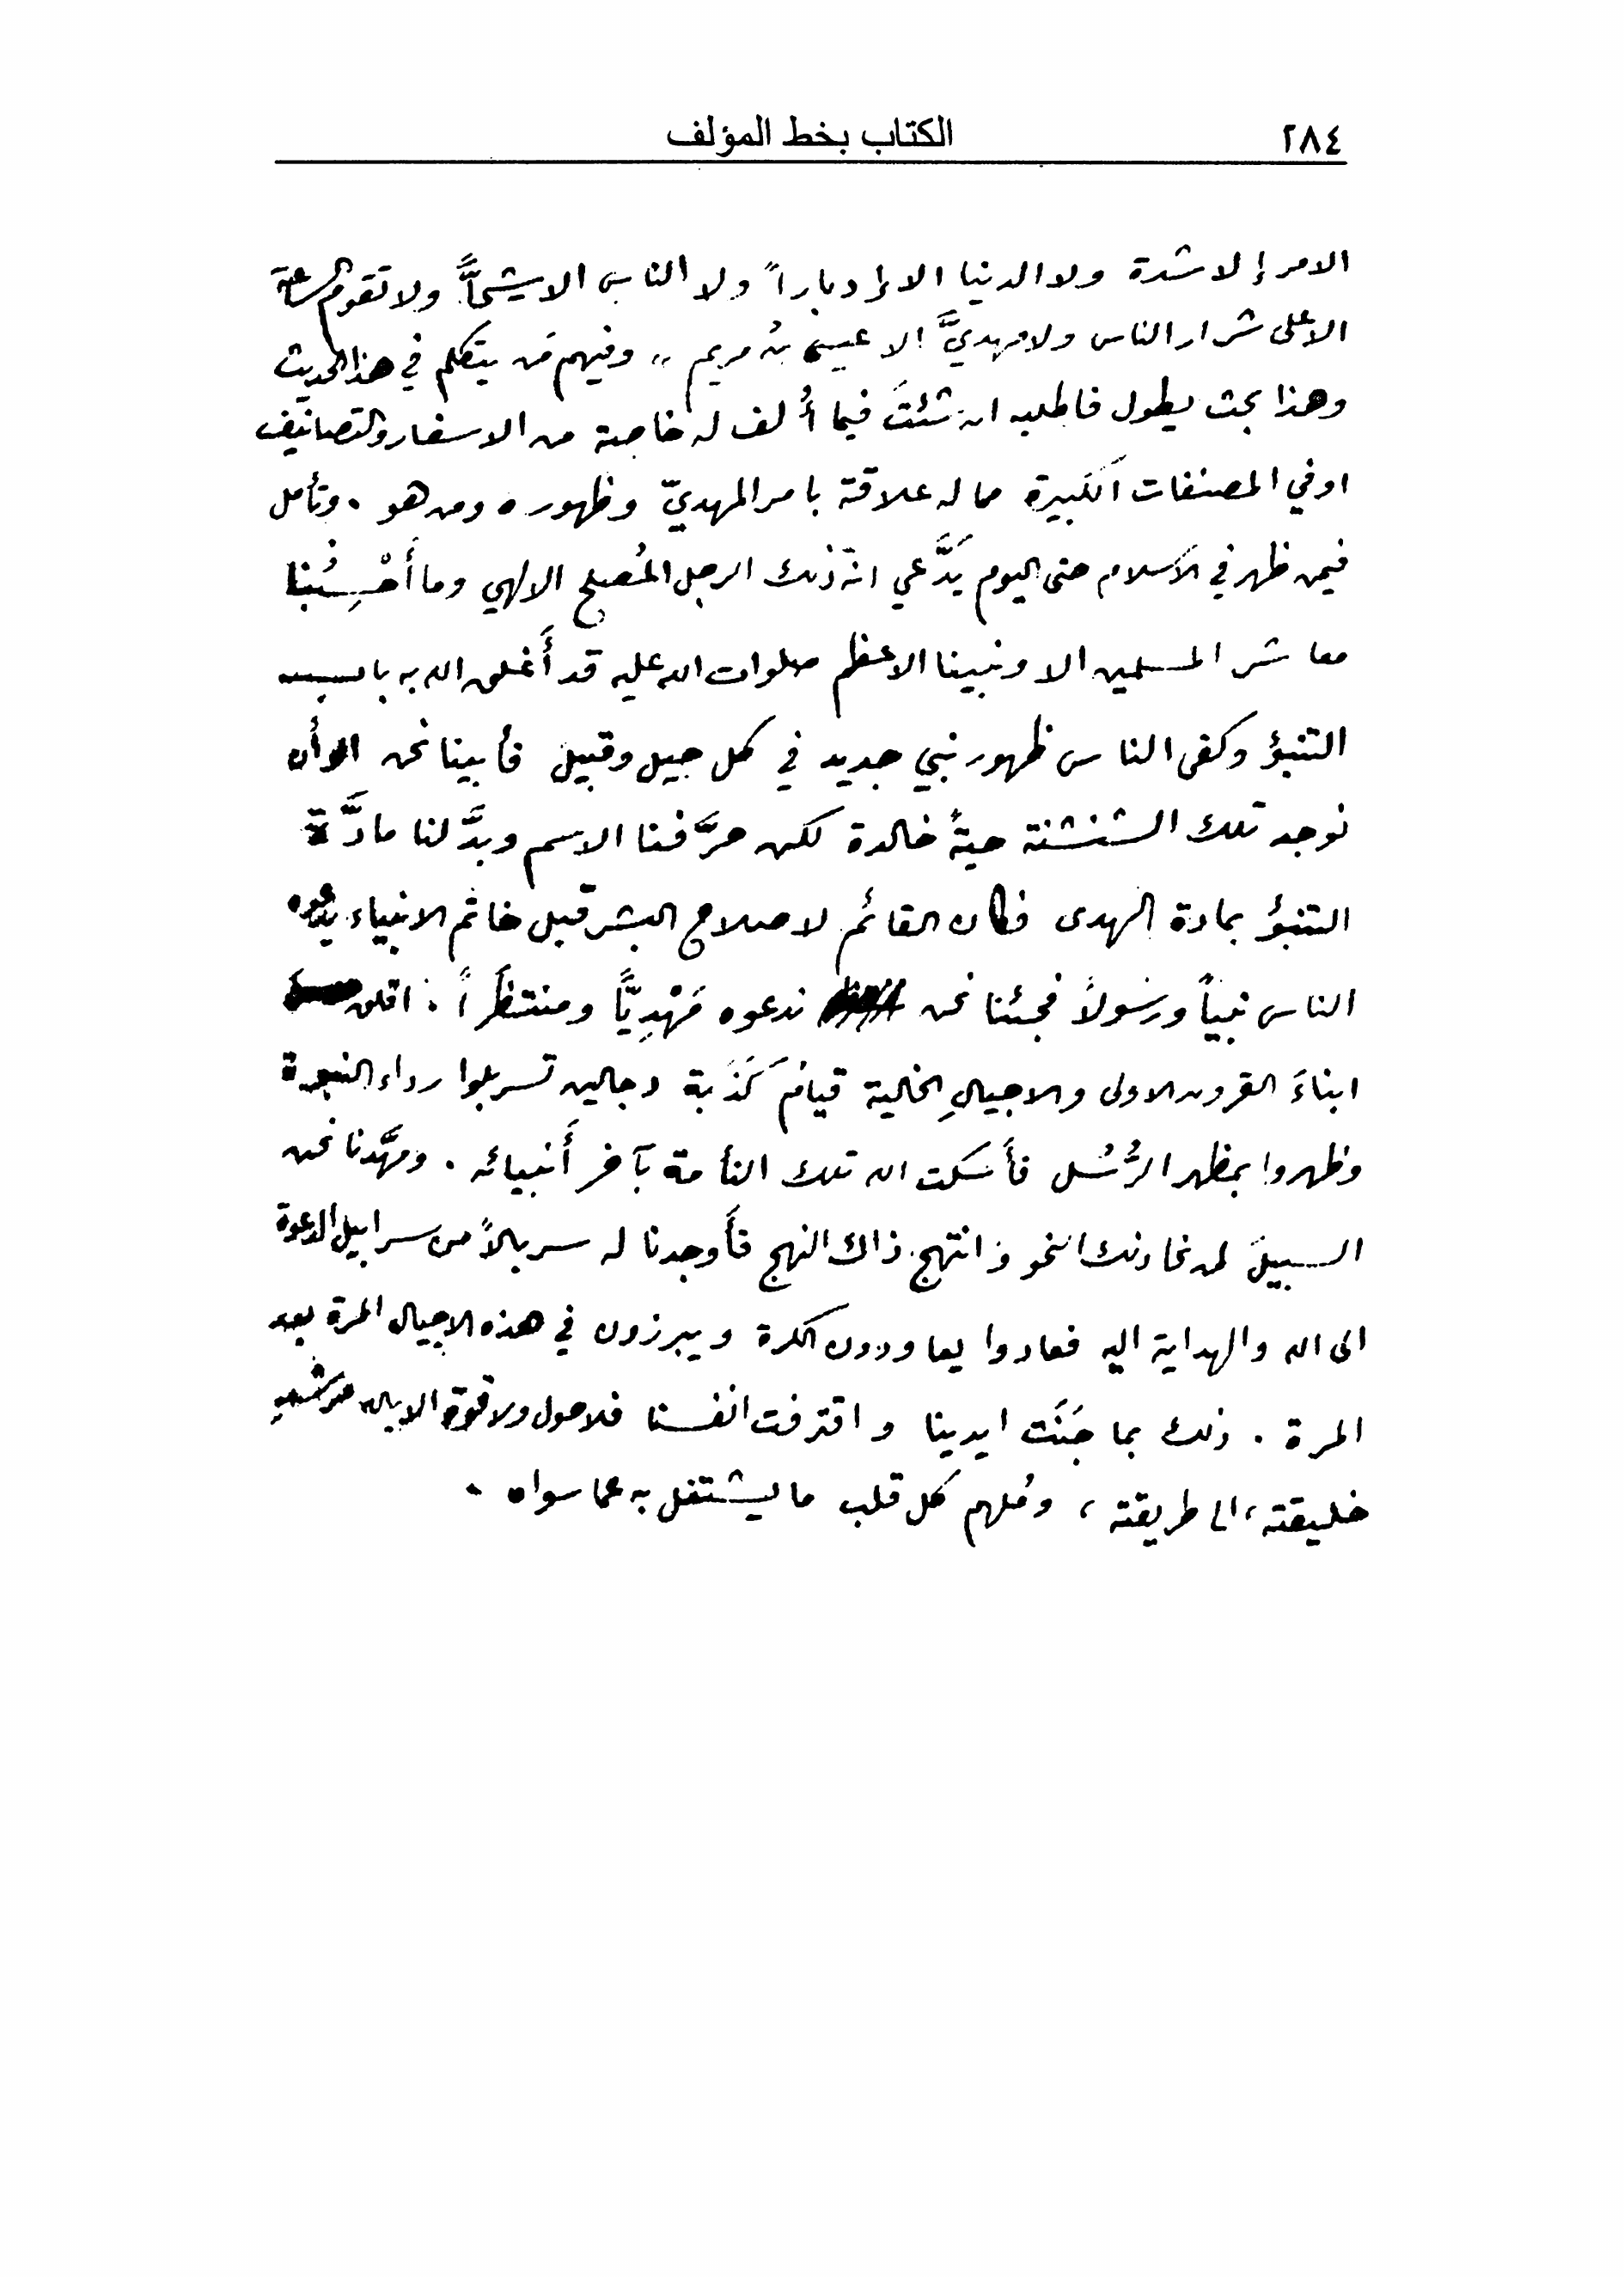 ٢٨٤ الكتاب بخط المؤلف
الامر إلا شدة ولا الدنيا الا إدباراً ولا الناس الا شحّاً ولا تقوم الساعة
الا على شرار الناس ولا مهديَّ الا عيسى بن مريم ،، وفيهم مَن يتكلم في هذا الحديث
وهذا بحث يطول فاطلبه ان شئتَ فيما أُلف له خاصة من الاسفار والتصانيف
او في المصنفات الكبيرة مما له علاقة بامر المهديّ وظهوره ومن هو . وتأمل
فيمن ظهر في الاسلام حتى اليوم يَدَّعي انه ذلك الرجل المُصلح الالهي وما أَحْسِبُنا
معاشر المسلمين الا ونبينا الاعظم صلوات الله عليه قد أَغلق الله به باب
التنبؤ وكفى الناس ظهور نبي جديد في كل جيل وقبيل فأبينا نحن الا أن
نوجد تلك الشنشنة حيةً خالدة لكن حرَّفنا الاسم وبدَّلنا مادَّة
التنبؤ بمادة الهدى فكان القائم لاصلاح البشر قبل خاتم الانبياء يدعوه
الناس نبياً ورسولاً فجئنا نحن ندعوه مَهْدِيّاً ومنتظَراً . اقلق
ابناءَ القرون الاولى والاجيالِ الخالية قيامُ كَذَبة دجالين تسربلوا رداء النبوة
وظهروا بمظهر الرُّسُل فأَسكت الله تلك النأمة بآخر أَنبيائه . ومهَّدنا نحن
السبيلَ لمن نحا ذلك النحو وانتهج ذاك النهج فأَوجدنا له سربالاً من سرابيل الدعوة
الى الله والهداية اليه فعادوا يعاودون الكرة ويبرزون في هذه الاجيال المرة بعد
المرة . ذلك بما جَنَت ايدينا واقترفت انفسنا فلا حول ولا قوة الا بالله مرشدِ
خليقته ، الى طريقته ، ومُلهم كل قلب ما يشتغل به عما سواه .